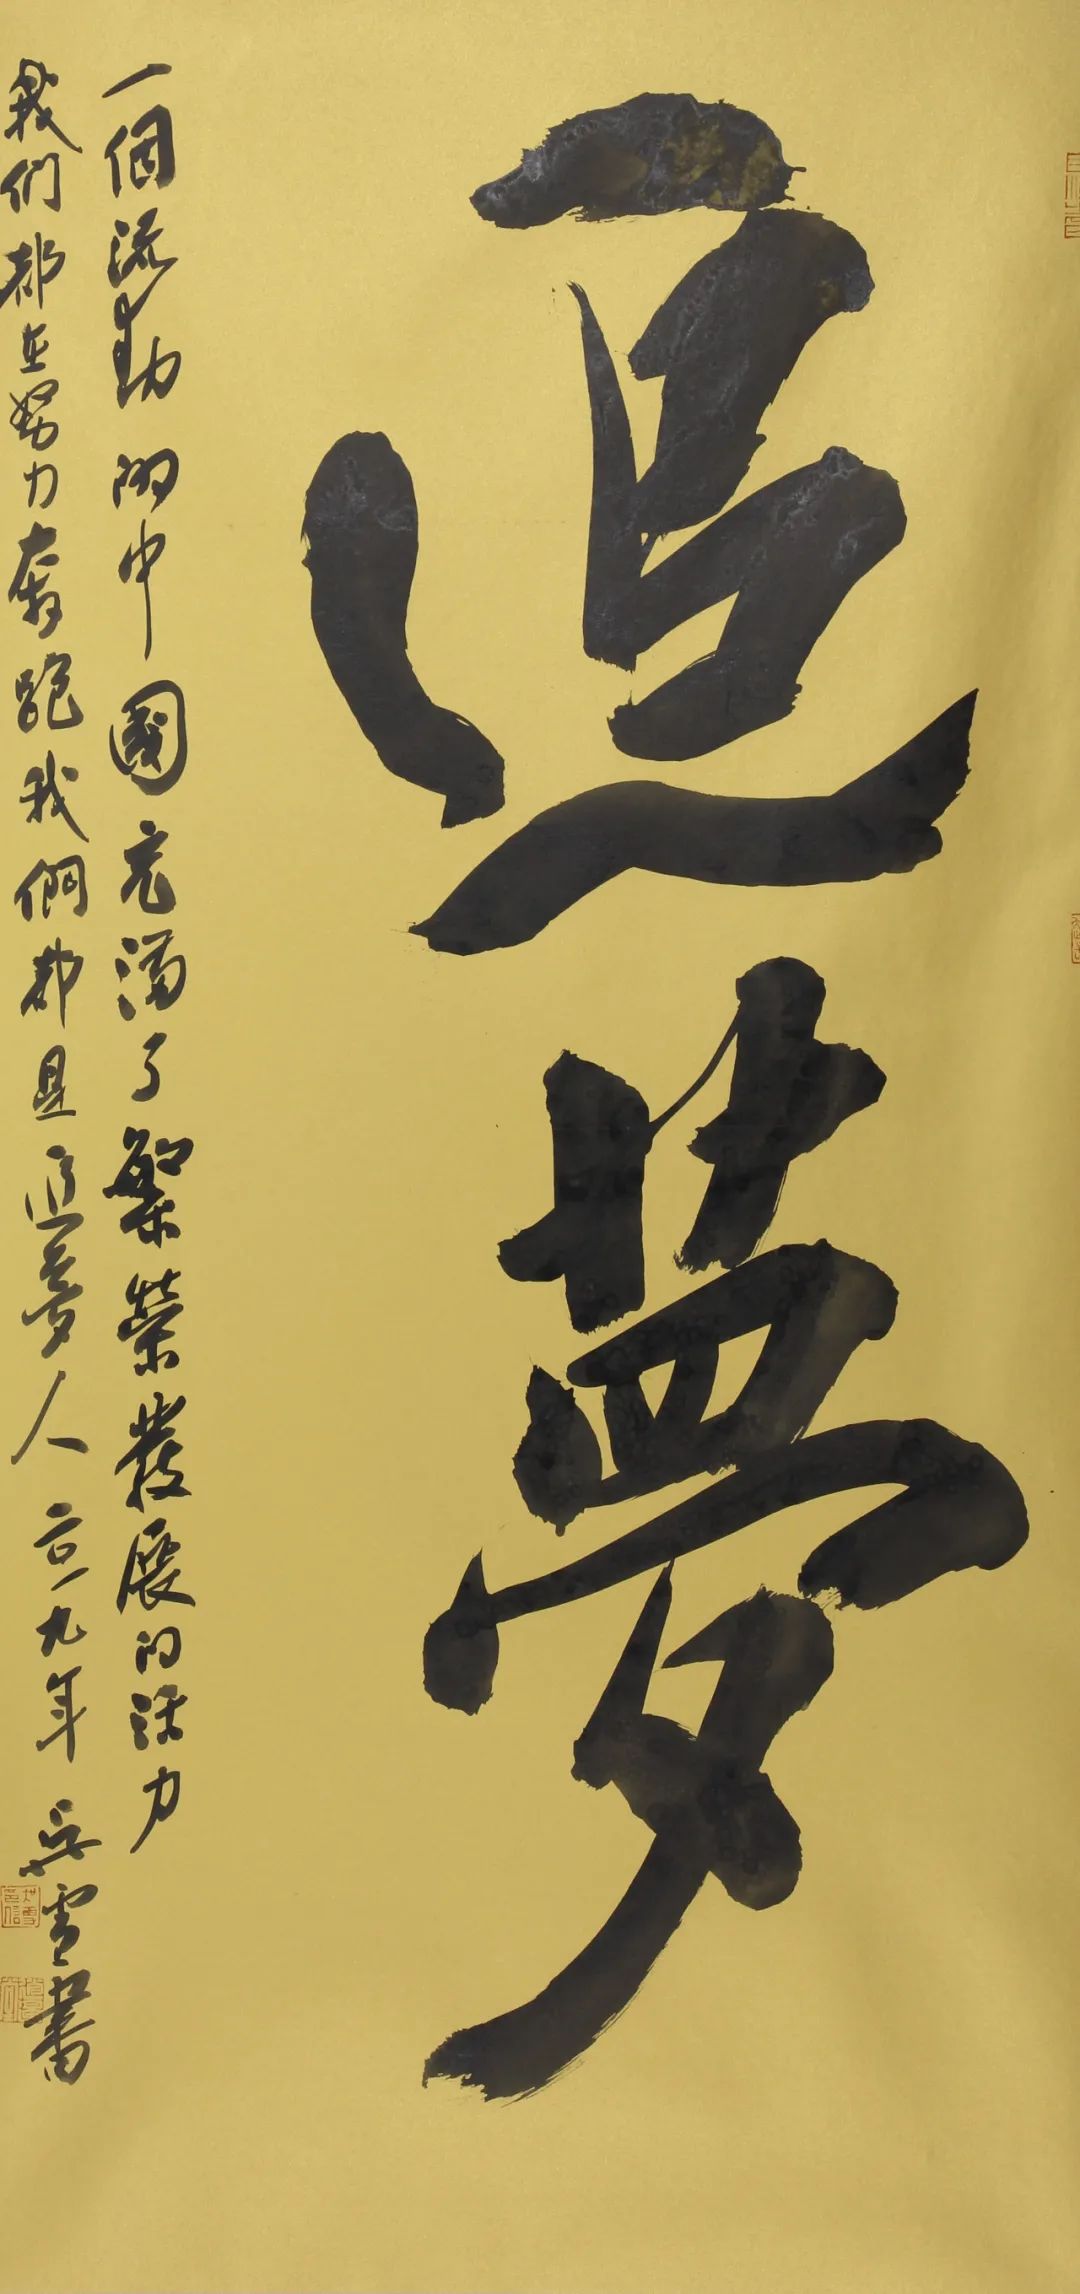 追夢
一個流動的中國充滿了繁榮發展的活力
我们都在努力奔跑我們都是追夢人 二〇一九年 吳雪書